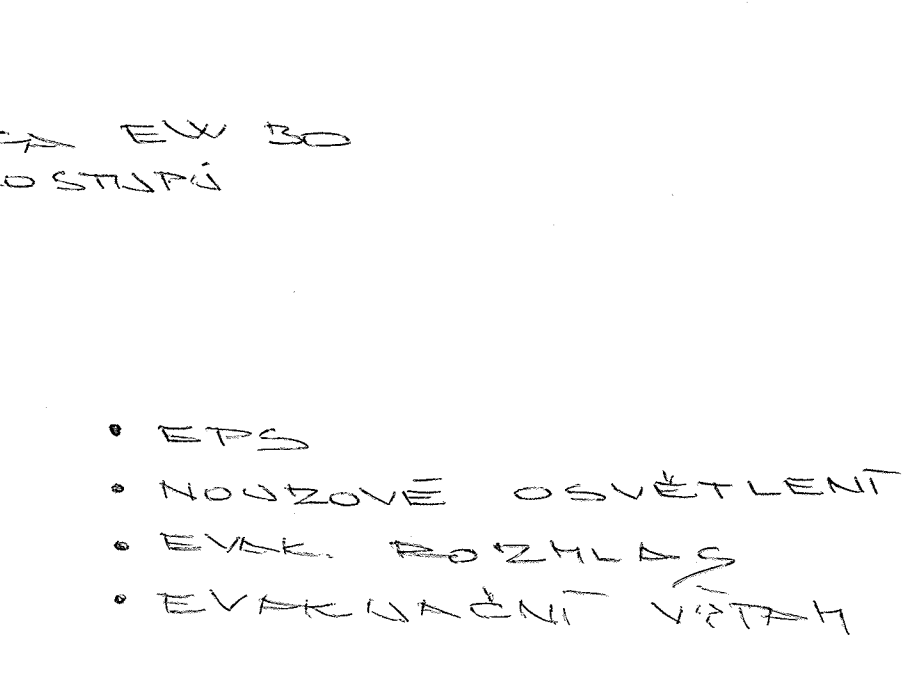 EW 30
OSTUPŮ
• EPS
• NOUZOVÉ OSVĚTLENÍ
• EVAK. ROZHLAS
• EVAKUAČNÍ VÝTAH